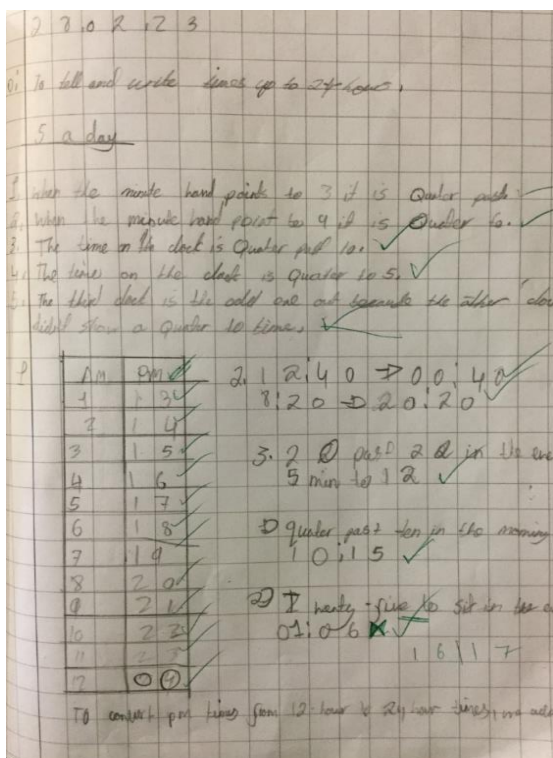 28.02.23
To tell and write times up to 24 hours.
5 a day
1. When the minute hand points to 3 it is Quater past
2. When the minute hand point to 9 it is Quater to.
3. The time on the clock is Quater past 10.
4. The time on the clock is Quater to 5.
5. The third clock is the odd one out because the other
didn't show a Quater to time.
Am Pm
1 13
2 14
3 15
4 16
5 17
6 18
7 19
8 20
9 21
10 22
11 23
12
2. 12:40 → 00:40
8:20 → 20:20
3. past in the
5 min to 12
quater past ten in the morning
10:15
2) Twenty-five to in the
01:06
16 17
To convert pm times from 12-hour to 24 hour times, we